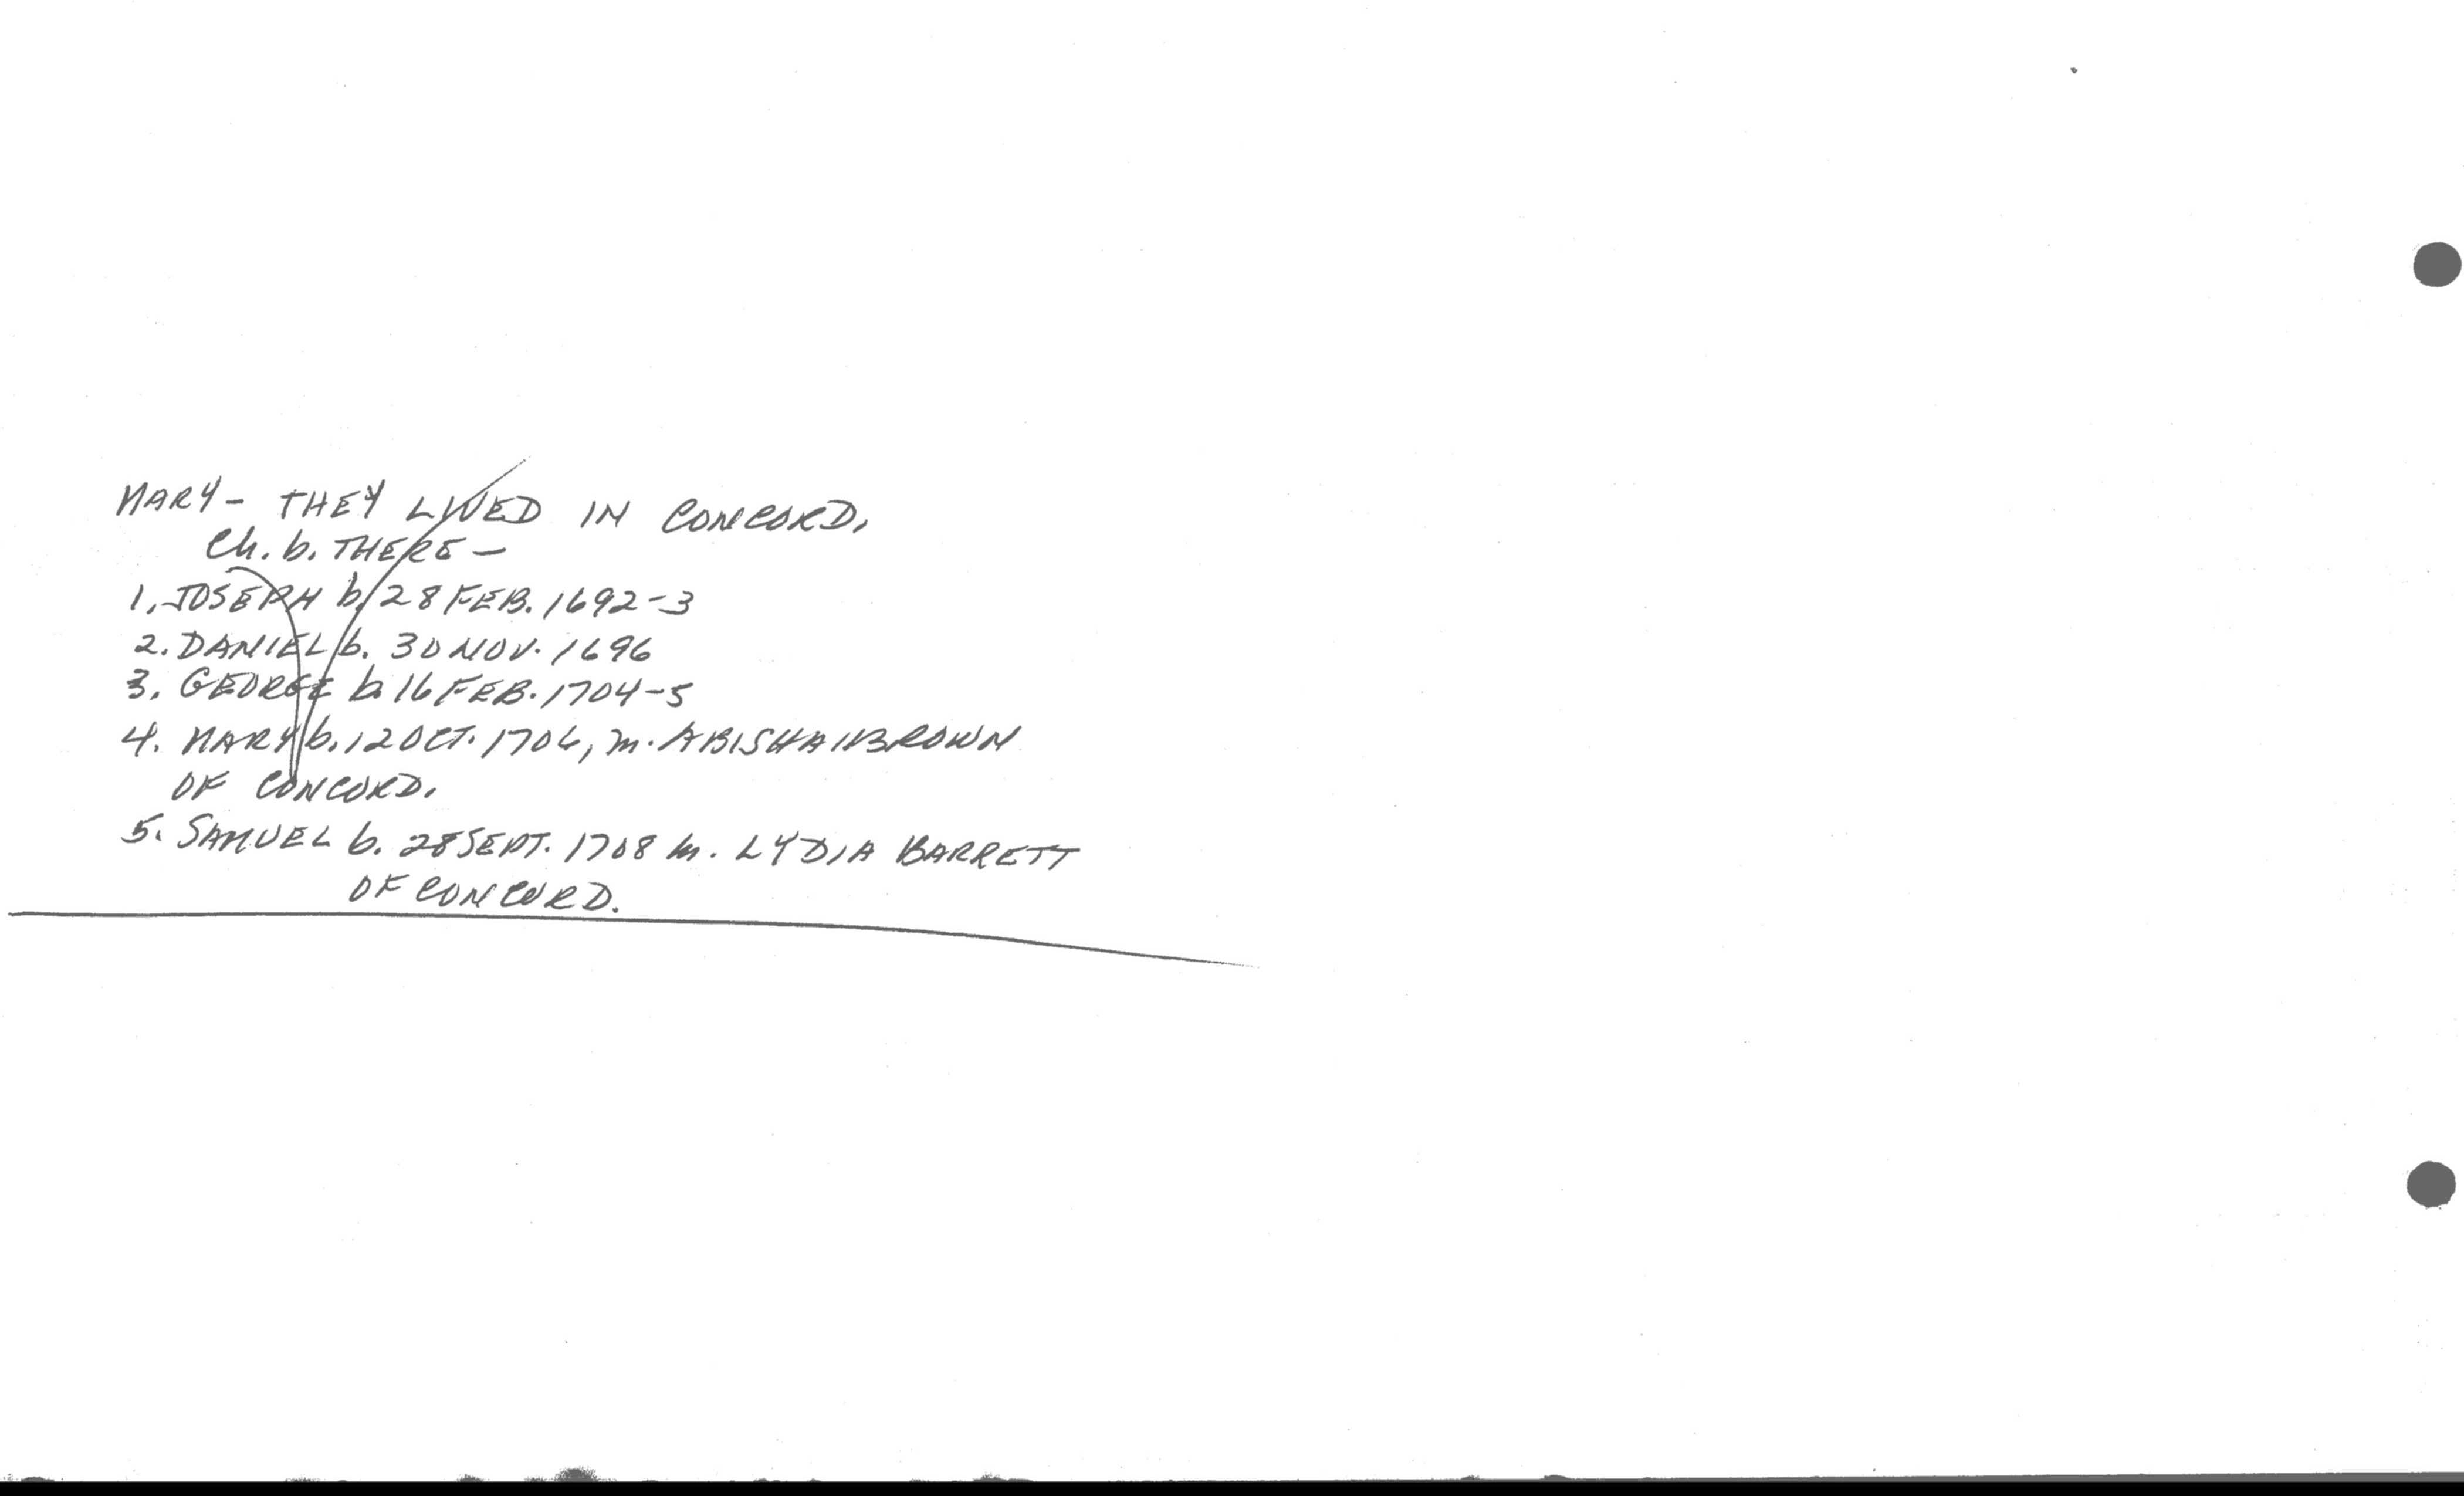 MARY - THEY LIVED IN CONCORD.
Ch. b. THERE -
1. JOSEPH b. 28 FEB. 1692-3
2. DANIEL b. 30 NOV. 1696
3. GEORGE b. 16 FEB. 1704-5
4. MARY b. 12 OCT. 1706, m. ABISHAI BROWN
OF CONCORD.
5. SAMUEL b. 28 SEPT. 1708 m. LYDIA BARRETT
OF CONCORD.